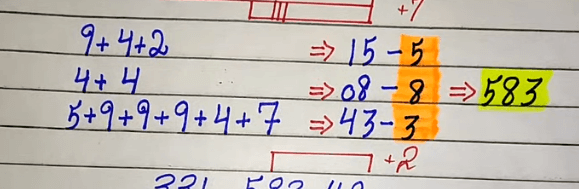 +7
9+4+2 ⇒ 15-5
4+4 ⇒ 08-8 ⇒ 583
5+9+9+9+4+7 ⇒ 43-3
+2